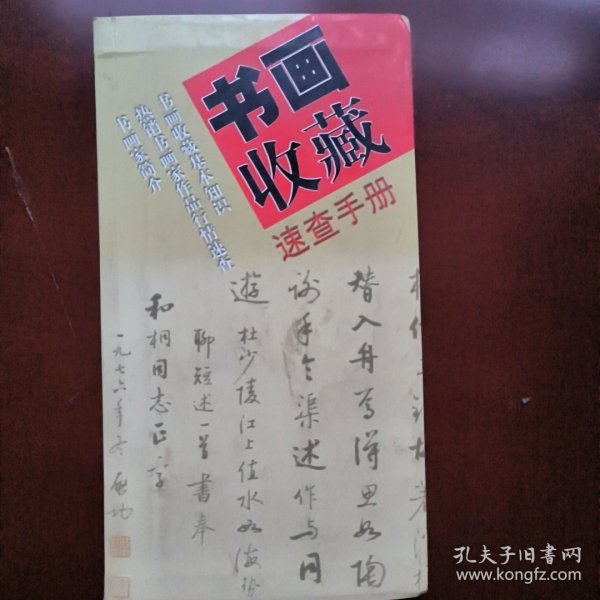 书画
收藏
速查手册
书画收藏基本知识
热销书画家作品行情速查
书画家简介
替入舟焉得思如陶
谢手令渠述作与同
遊 杜少陵江上值水如海势
聊短述一首 书奉
和桐同志正字
一九七六年冬 启功
孔夫子旧书网
www.kongfz.com